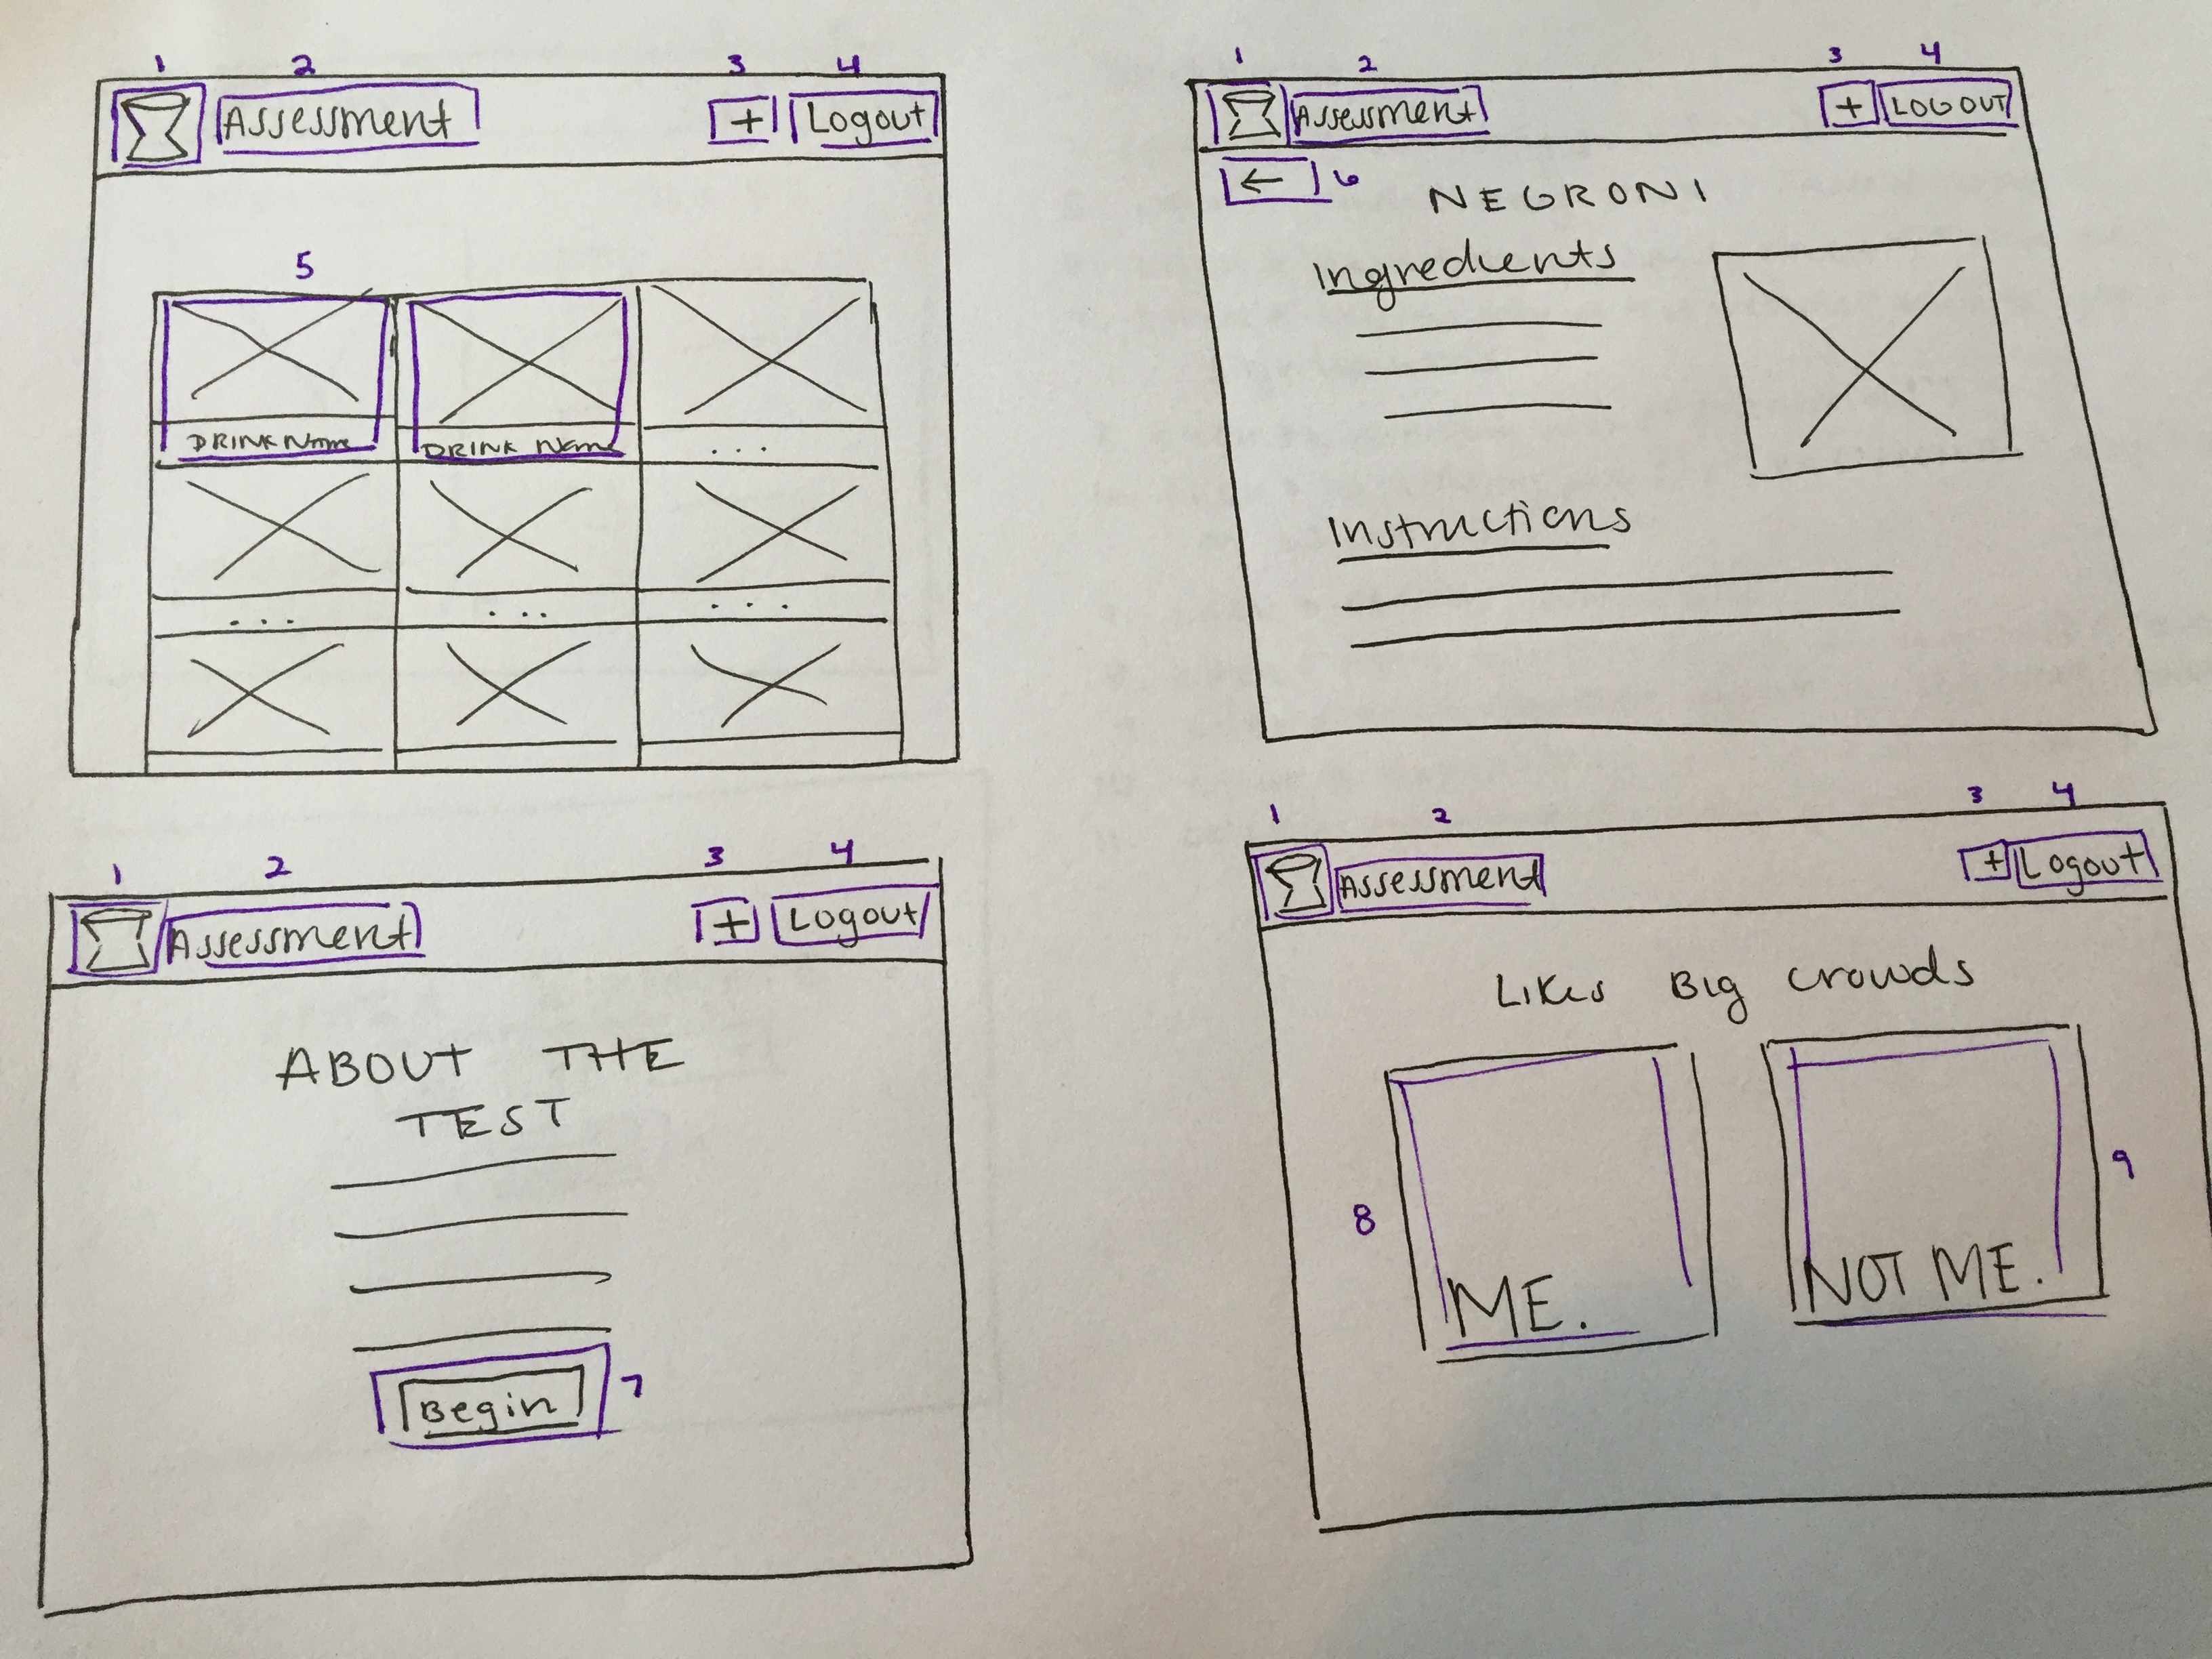 1 2 3 4
Assessment + Logout
5
DRINK Name DRINK Name ...
... ... ...
1 2 3 4
Assessment + LOGOUT
← 6
NEGRONI
Ingredients
Instructions
1 2 3 4
Assessment + Logout
ABOUT THE
TEST
Begin 7
1 2 3 4
Assessment + Logout
Likes Big crowds
8 9
ME. NOT ME.